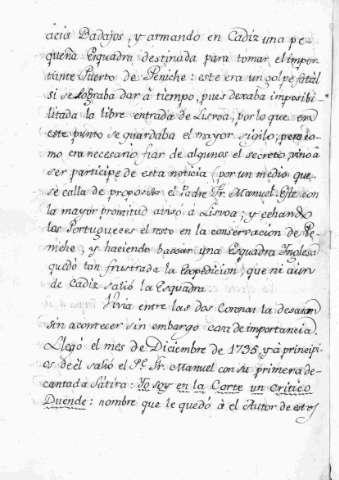 acia Badajos, y armando en Cadiz una pe
queña Esquadra destinada para tomar el impor
tante Puerto de Peniche: este era un golpe fatal
si se lograba dar â tiempo, pues dexaba imposibi-
litada la libre entrada de Lisvoa, por lo que en
este punto se guardaba el mayor sigilo, pero co-
mo era necesario fiar de algunos el secreto, vino â
ser participe de esta noticia (por un medio que
se calla de proposito el Padre Fr. Manuel. Este con
la mayor promitud avisó â Lisvoa; y echando
los Portugueses el resto en la conservacion de Pe-
niche, y haciendo baxar una Esquadra Inglesa
quedó tan frustrada la Expedicion, que ni aun
de Cadiz salió la Esquadra.
Vivia entre las dos Coronas la desazon
sin acontecer sin embargo cosa de importancia.
Llegó el mes de Diciembre de 1735, y â principi-
os de el salió el Pe. Fr. Manuel con su primera de-
cantada Sátira: Yo soy en la Corte un critico
Duende: nombre que le quedó â el Autor de este